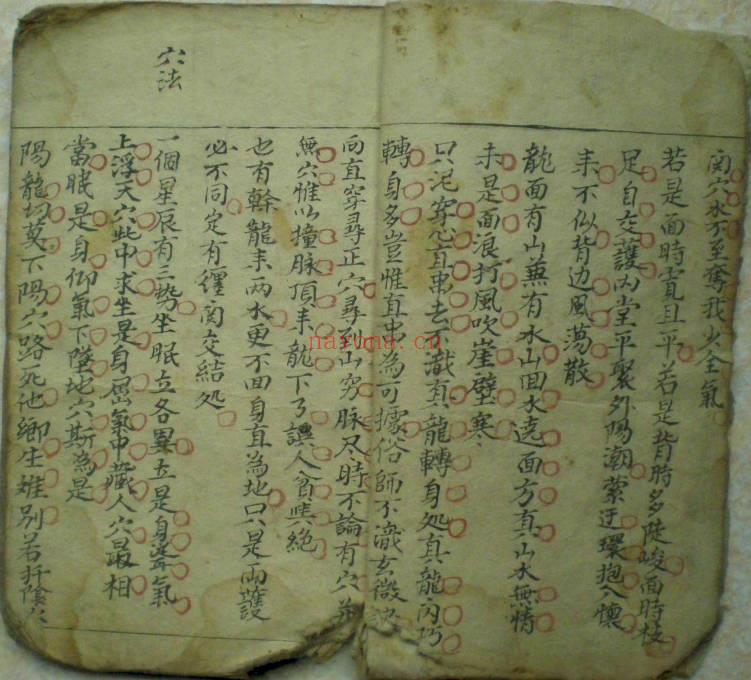 関穴水不至奪我火全氣
若是面時寬且平若是背時多陡峻面時枝
足自交護内堂平聚外陽潮縈迂環抱入懷
耒不似背边風蕩散
龍面有山兼有水山囬水遶面方真山水無情
耒是面浪打風吹崖壁寒
只泥穿心直串去不識真龍轉身処真龍閃巧
轉身多豈惟直串為可據俗師不識玄微訣
向直穿尋正穴尋到山窮脉尽時不論有穴并
無穴惟以撞脉頂耒龍下了誤人貧與絶
也有幹龍耒両水更不囬身直為地只是両護
必不同定有纒関交結処
穴法
一個星辰有三勢坐眠立各異立是身聳氣
上浮天穴此中求坐是身屈氣中藏人穴最相
當眠是身仰氣下墜地穴斯為是
陽龍切莫下陽穴路死他鄉生離别若扦陰穴
nayona.cn